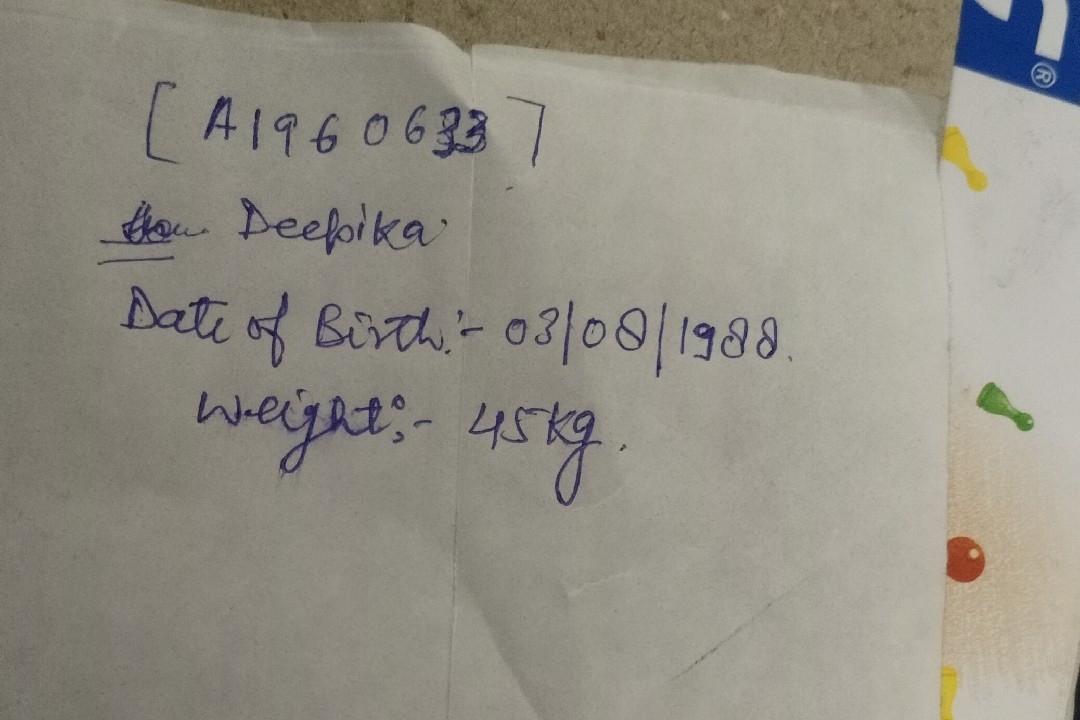 [ A1960633 ]
Deepika
Date of Birth:- 03/08/1988.
Weight:- 45kg.
®